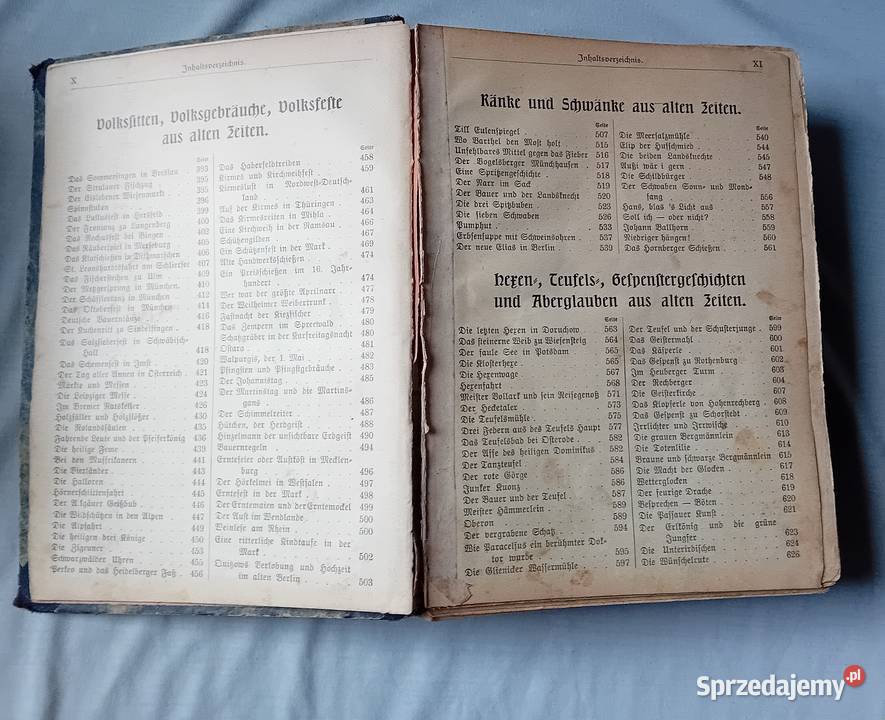 X
Inhaltsverzeichnis.
Volkssitten, Volksgebräuche, Volksfeste
aus alten Zeiten.
Seite
Das Sommersingen in Breslau 393
Der Stralauer Fischzug 395
Der Eislebener Wiesenmarkt 395
Spinnstuben 396
Das Lullusfest in Hersfeld 399
Der Fronweg zu Langenberg 400
Das Rochusfest bei Bingen 402
Das Räuberspiel in Merseburg 405
Das Klotschießen in Dithmarschen 406
St. Leonhardsfahrt am Schliersee 407
Das Fischerstechen zu Ulm 410
Der Metzgersprung in München 410
Der Schäfflertanz in München 412
Das Oktoberfest in München 414
Deutsche Bauerntänze 416
Der Kuchenritt zu Sindelfingen 418
Das Salzsiederfest in Schwäbisch-
Hall 418
Das Schemenfest in Imst 420
Der Tag aller Armen in Österreich 421
Märkte und Messen 423
Die Leipziger Messe 424
Im Bremer Ratskeller 426
Holzfäller und Holzflößer 430
Die Rolandssäulen 435
Fahrende Leute und der Pfeiferkönig 436
Die heilige Feme 439
Bei den Musikanten 440
Die Vierländer 443
Die Halloren 444
Hörnerschlittenfahrt 445
Der Allgäuer Geißbub 446
Die Wildschützen in den Alpen 447
Die Alpfahrt 449
Die heiligen drei Könige 450
Die Zigeuner 453
Schwarzwälder Uhren 455
Perkeo und das Heidelberger Faß 456
Seite
Das Haberfeldtreiben 458
Kirmes und Kirchweihfest 459
Kirmeslust in Nordwest-Deutsch-
land 461
Auf der Kirmes in Thüringen 463
Das Kirmesreiten in Mihla 464
Eine Kirchweih in der Ramsau 467
Schützengilden 467
Ein Schützenfest in der Mark 469
Alte Handwerkssitten 474
Ein Preisschießen im 16. Jahr-
hundert 474
Wer war der größte Aprilnarr 477
Der Weilheimer Weibertrunk 478
Fastnacht der Kiezfischer 479
Das Zempern im Spreewald 480
Schatzgräber in der Karfreitagsnacht 480
Ostara 481
Walpurgis, der 1. Mai 482
Pfingsten und Pfingstgebräuche 483
Der Johannistag 485
Der Martinstag und die Martins-
gans 486
Der Schimmelreiter 487
Hütchen, der Herdgeist 488
Hinzelmann der unsichtbare Erdgeist 490
Bauernregeln 494
Erntefeier oder Austköst in Mecklen-
burg 496
Der Hörkelmei in Westfalen 497
Erntefest in der Mark 498
Der Erntewaien und der Erntemockel 499
Der Aust im Wendlande 500
Weinlese am Rhein 500
Eine ritterliche Kindtaufe in der
Mark 502
Quitzows Verlobung und Hochzeit
im alten Berlin 503
Inhaltsverzeichnis.
XI
Ränke und Schwänke aus alten Zeiten.
Seite
Till Eulenspiegel 507
Wo Barthel den Most holt 515
Unfehlbares Mittel gegen das Fieber 516
Der Vogelsberger Münchhausen 517
Eine Spritzengeschichte 518
Der Narr im Sack 519
Der Bauer und der Landsknecht 520
Die drei Spitzbuben 523
Die sieben Schwaben 526
Pumphut 533
Erbsensuppe mit Schweinsohren 537
Der neue Elias in Berlin 539
Seite
Die Meersalzmühle 540
Slip der Hufschmied 544
Die beiden Landsknechte 545
Aufsi wär i gern 547
Die Schildbürger 548
Der Schwaben Sonn- und Mond-
fang 556
Hans, blas 's Licht aus 557
Soll ich — oder nicht? 558
Johann Ballhorn 559
Niedriger hängen! 560
Das Hornberger Schießen 561
Hexen-, Teufels-, Gespenstergeschichten
und Aberglauben aus alten Zeiten.
Seite
Die letzten Hexen in Doruchow 563
Das steinerne Weib zu Wiesensteig 564
Der faule See in Potsdam 565
Die Klosterhexe 565
Die Hexenwage 567
Hexenfahrt 568
Meister Bollark und sein Reisegenoß 571
Der Hecketaler 573
Die Teufelsmühle 575
Drei Federn aus des Teufels Haupt 577
Das Teufelsbad bei Osterode 582
Der Affe des heiligen Dominikus 582
Der Tanzteufel 584
Der rote Görge 586
Junker Kuonz 586
Der Bauer und der Teufel 587
Meister Hämmerlein 589
Oberon 589
Der vergrabene Schatz 594
Wie Paracelsus ein berühmter Dok-
tor wurde 595
Die Glienicker Wassermühle 597
Seite
Der Teufel und der Schusterjunge 599
Das Geistermahl 600
Das Käsperle 601
Das Gespenst zu Rothenburg 602
Im Heuberger Turm 603
Der Rechberger 604
Die Geisterkirche 607
Das Klopferle von Hohenrechberg 608
Das Gespenst zu Schorstedt 609
Irrlichter und Irrwische 610
Die grauen Bergmännlein 613
Die Totenlilie 614
Braune und schwarze Bergmännlein 615
Die Macht der Glocken 617
Wetterglocken 618
Der feurige Drache 619
Besprechen — Böten 620
Die Passauer Kunst 621
Der Erlkönig und die grüne
Jungfer 623
Die Unterirdischen 624
Die Wünschelrute 626
Sprzedajemy.pl